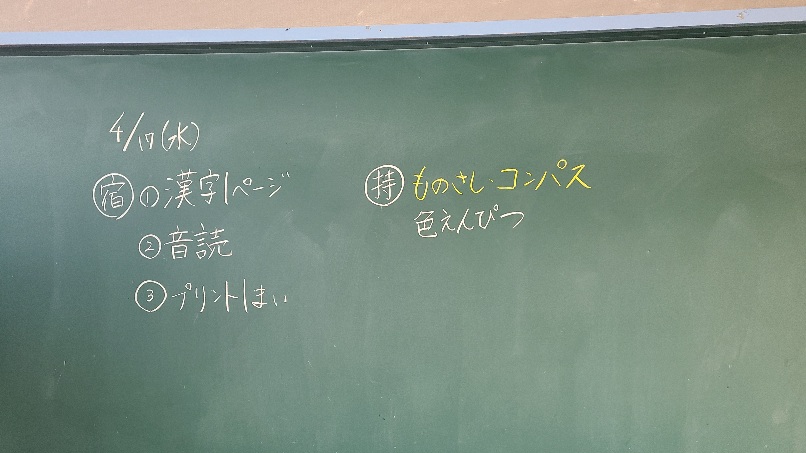 4/17(水)
宿 ①漢字1ページ
②音読
③プリント1まい
持 ものさし・コンパス
色えんぴつ